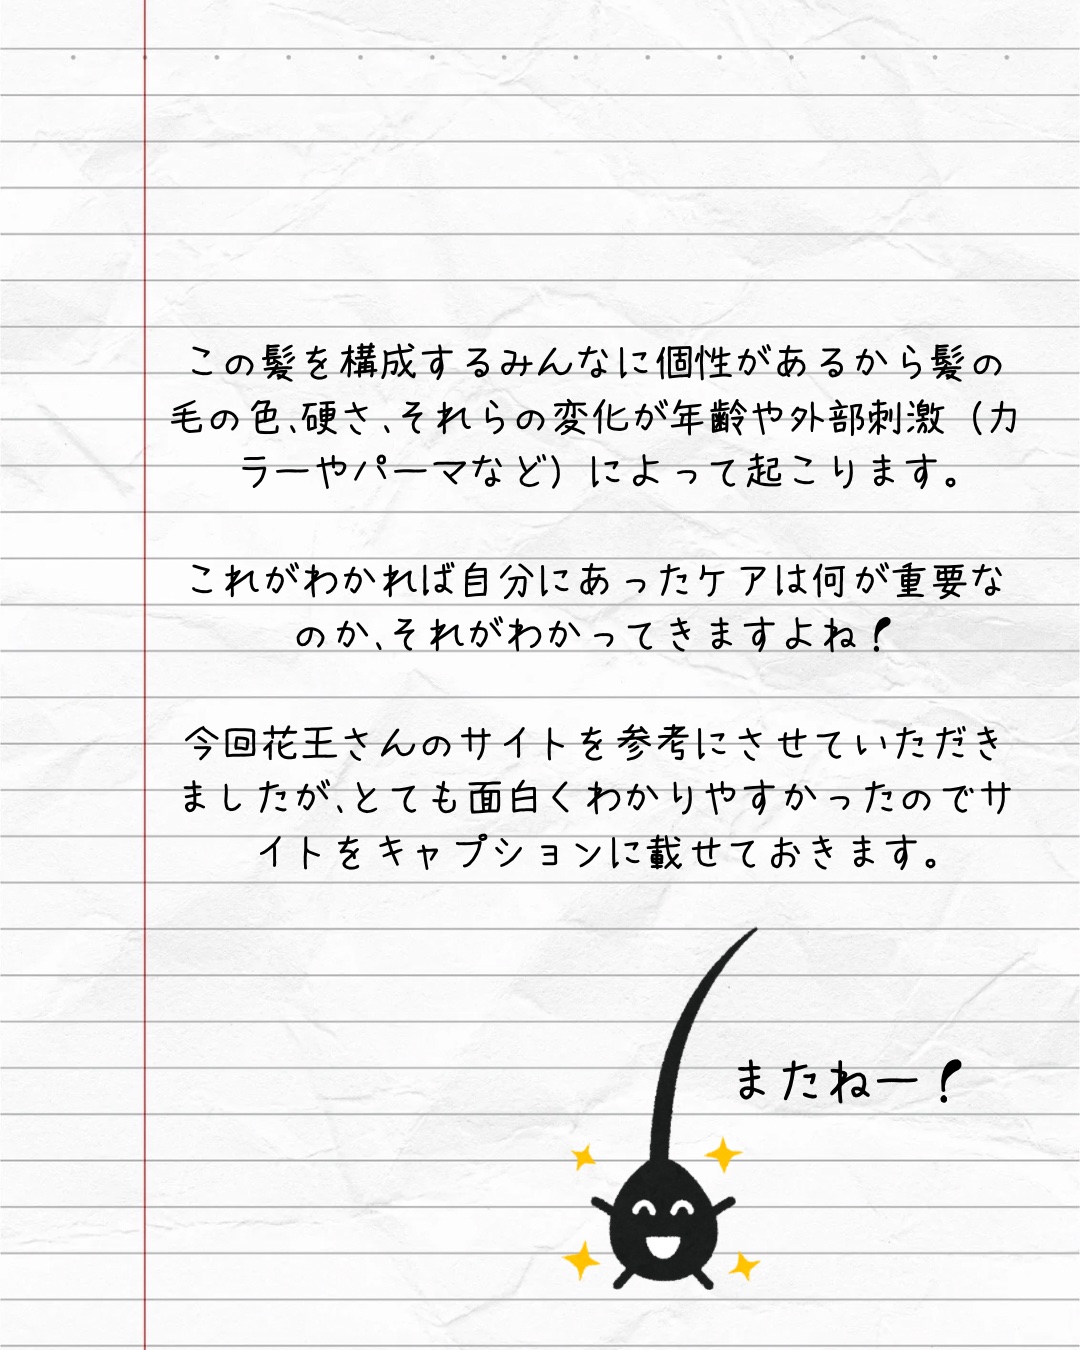 この髪を構成するみんなに個性があるから髪の
毛の色、硬さ、それらの変化が年齢や外部刺激（カ
ラーやパーマなど）によって起こります。
これがわかれば自分にあったケアは何が重要な
のか、それがわかってきますよね！
今回花王さんのサイトを参考にさせていただき
ましたが、とても面白くわかりやすかったのでサ
イトをキャプションに載せておきます。
またねー！